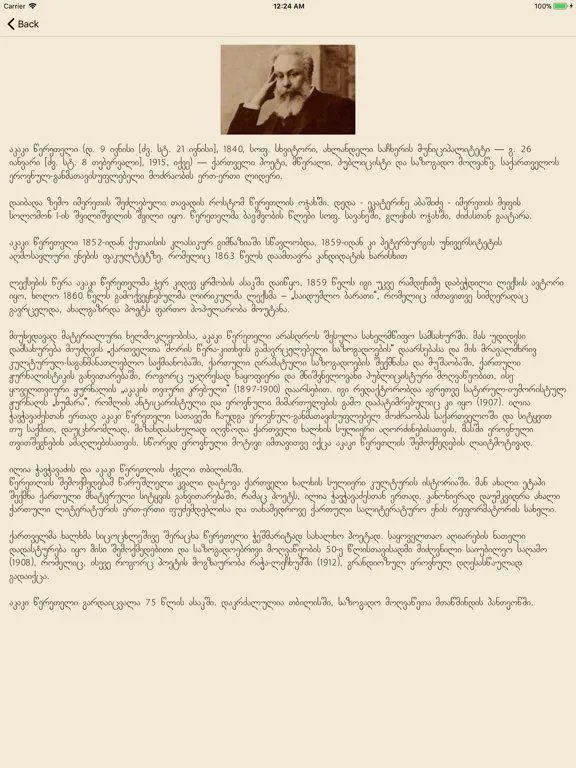 Carrier 12:24 AM 100%
Back
აკაკი წერეთელი (დ. 9 ივნისი [ძვ. სტ. 21 ივნისი], 1840, სოფ. სხვიტორი, ახლანდელი საჩხერის მუნიციპალიტეტი — გ. 26
იანვარი [ძვ. სტ. 8 თებერვალი], 1915, იქვე) — ქართველი პოეტი, მწერალი, პუბლიცისტი და საზოგადო მოღვაწე, საქართველოს
ეროვნულ-განმათავისუფლებელი მოძრაობის ერთ-ერთი ლიდერი.
დაიბადა ზემო იმერეთის შეძლებული თავადის როსტომ წერეთლის ოჯახში. დედა - ეკატერინე აბაშიძე - იმერეთის მეფის
სოლომონ I-ის შვილიშვილის შვილი იყო. წერეთელმა ბავშვობის წლები სოფ. სავანეში, გლეხის ოჯახში, ძიძასთან გაატარა.
აკაკი წერეთელი 1852-იდან ქუთაისის კლასიკურ გიმნაზიაში სწავლობდა, 1859-იდან კი პეტერბურგის უნივერსიტეტის
აღმოსავლური ენების ფაკულტეტზე, რომელიც 1863 წელს დაამთავრა კანდიდატის ხარისხით
ლექსების წერა აკაკი წერეთელმა ჯერ კიდევ ყრმობის ასაკში დაიწყო, 1859 წელს იგი უკვე რამდენიმე დაბეჭდილი ლექსის ავტორი
იყო, ხოლო 1860 წელს გამოქვეყნებულმა ლირიკულმა ლექსმა – „საიდუმლო ბარათი“, რომელიც იმთავითვე სიმღერადაც
გავრცელდა, ახალგაზრდა პოეტს ფართო პოპულარობა მოუტანა.
მიუხედავად მატერიალური ხელმოკლეობისა, აკაკი წერეთელი არასდროს შესულა სახელმწიფო სამსახურში. მას უდიდესი
დამსახურება მიუძღვის „ქართველთა შორის წერა-კითხვის გამავრცელებელი საზოგადოების“ დაარსებასა და მის მრავალმხრივ
კულტურულ-საგანმანათლებლო საქმიანობაში, ქართული დრამატული საზოგადოების შექმნასა და მუშაობაში, ქართული
ჟურნალისტიკის განვითარებაში, როგორც უაღრესად ნაყოფიერი და მნიშვნელოვანი პუბლიცისტური მოღვაწეობით, ისე
ყოველთვიური ჟურნალის „აკაკის თვიური კრებული“ (1897-1900) დაარსებით. იგი რედაქტორობდა აგრეთვე სატირულ-იუმორისტულ
ჟურნალს „ხუმარა“, რომლის ანტიცარისტული და ეროვნული მიმართულების გამო დაპატიმრებულიც კი იყო (1907). ილია
ჭავჭავაძესთან ერთად აკაკი წერეთელი სათავეში ჩაუდგა ეროვნულ-განმათავისუფლებელ მოძრაობას საქართველოში და სიტყვით
თუ საქმით, დაუცხრომლად, მიზანდასახულად იღვწოდა ქართველი ხალხის სულიერი აღორძინებისათვის, მასში ეროვნული
თვითშეგნების ამაღლებისათვის. სწორედ ეროვნული მოტივი იმთავითვე იქცა აკაკი წერეთლის შემოქმედების ლაიტმოტივად.
ილია ჭავჭავაძის და აკაკი წერეთლის ძეგლი თბილისში.
წერეთლის შემოქმედებამ წარუშლელი კვალი დატოვა ქართველი ხალხის სულიერი კულტურის ისტორიაში. მან ახალი ეტაპი
შექმნა ქართული მხატვრული სიტყვის განვითარებაში, რამაც პოეტს, ილია ჭავჭავაძესთან ერთად, კანონიერად დაუმკვიდრა ახალი
ქართული ლიტერატურის ერთ-ერთი ფუძემდებლისა და თანამედროვე ქართული სალიტერატურო ენის რეფორმატორის სახელი.
ქართველმა ხალხმა სიცოცხლეშივე შერაცხა წერეთელი ჭეშმარიტად სახალხო პოეტად. საყოველთაო აღიარების ნათელი
დადასტურება იყო მისი შემოქმედებითი და საზოგადოებრივი მოღვაწეობის 50-ე წლისთავისადმი მიძღვნილი საიუბილეო საღამო
(1908), რომელიც, ისევე როგორც პოეტის მოგზაურობა რაჭა-ლეჩხუმში (1912), გრანდიოზულ ეროვნულ დღესასწაულად
გადაიქცა.
აკაკი წერეთელი გარდაიცვალა 75 წლის ასაკში. დაკრძალულია თბილისში, საზოგადო მოღვაწეთა მთაწმინდის პანთეონში.